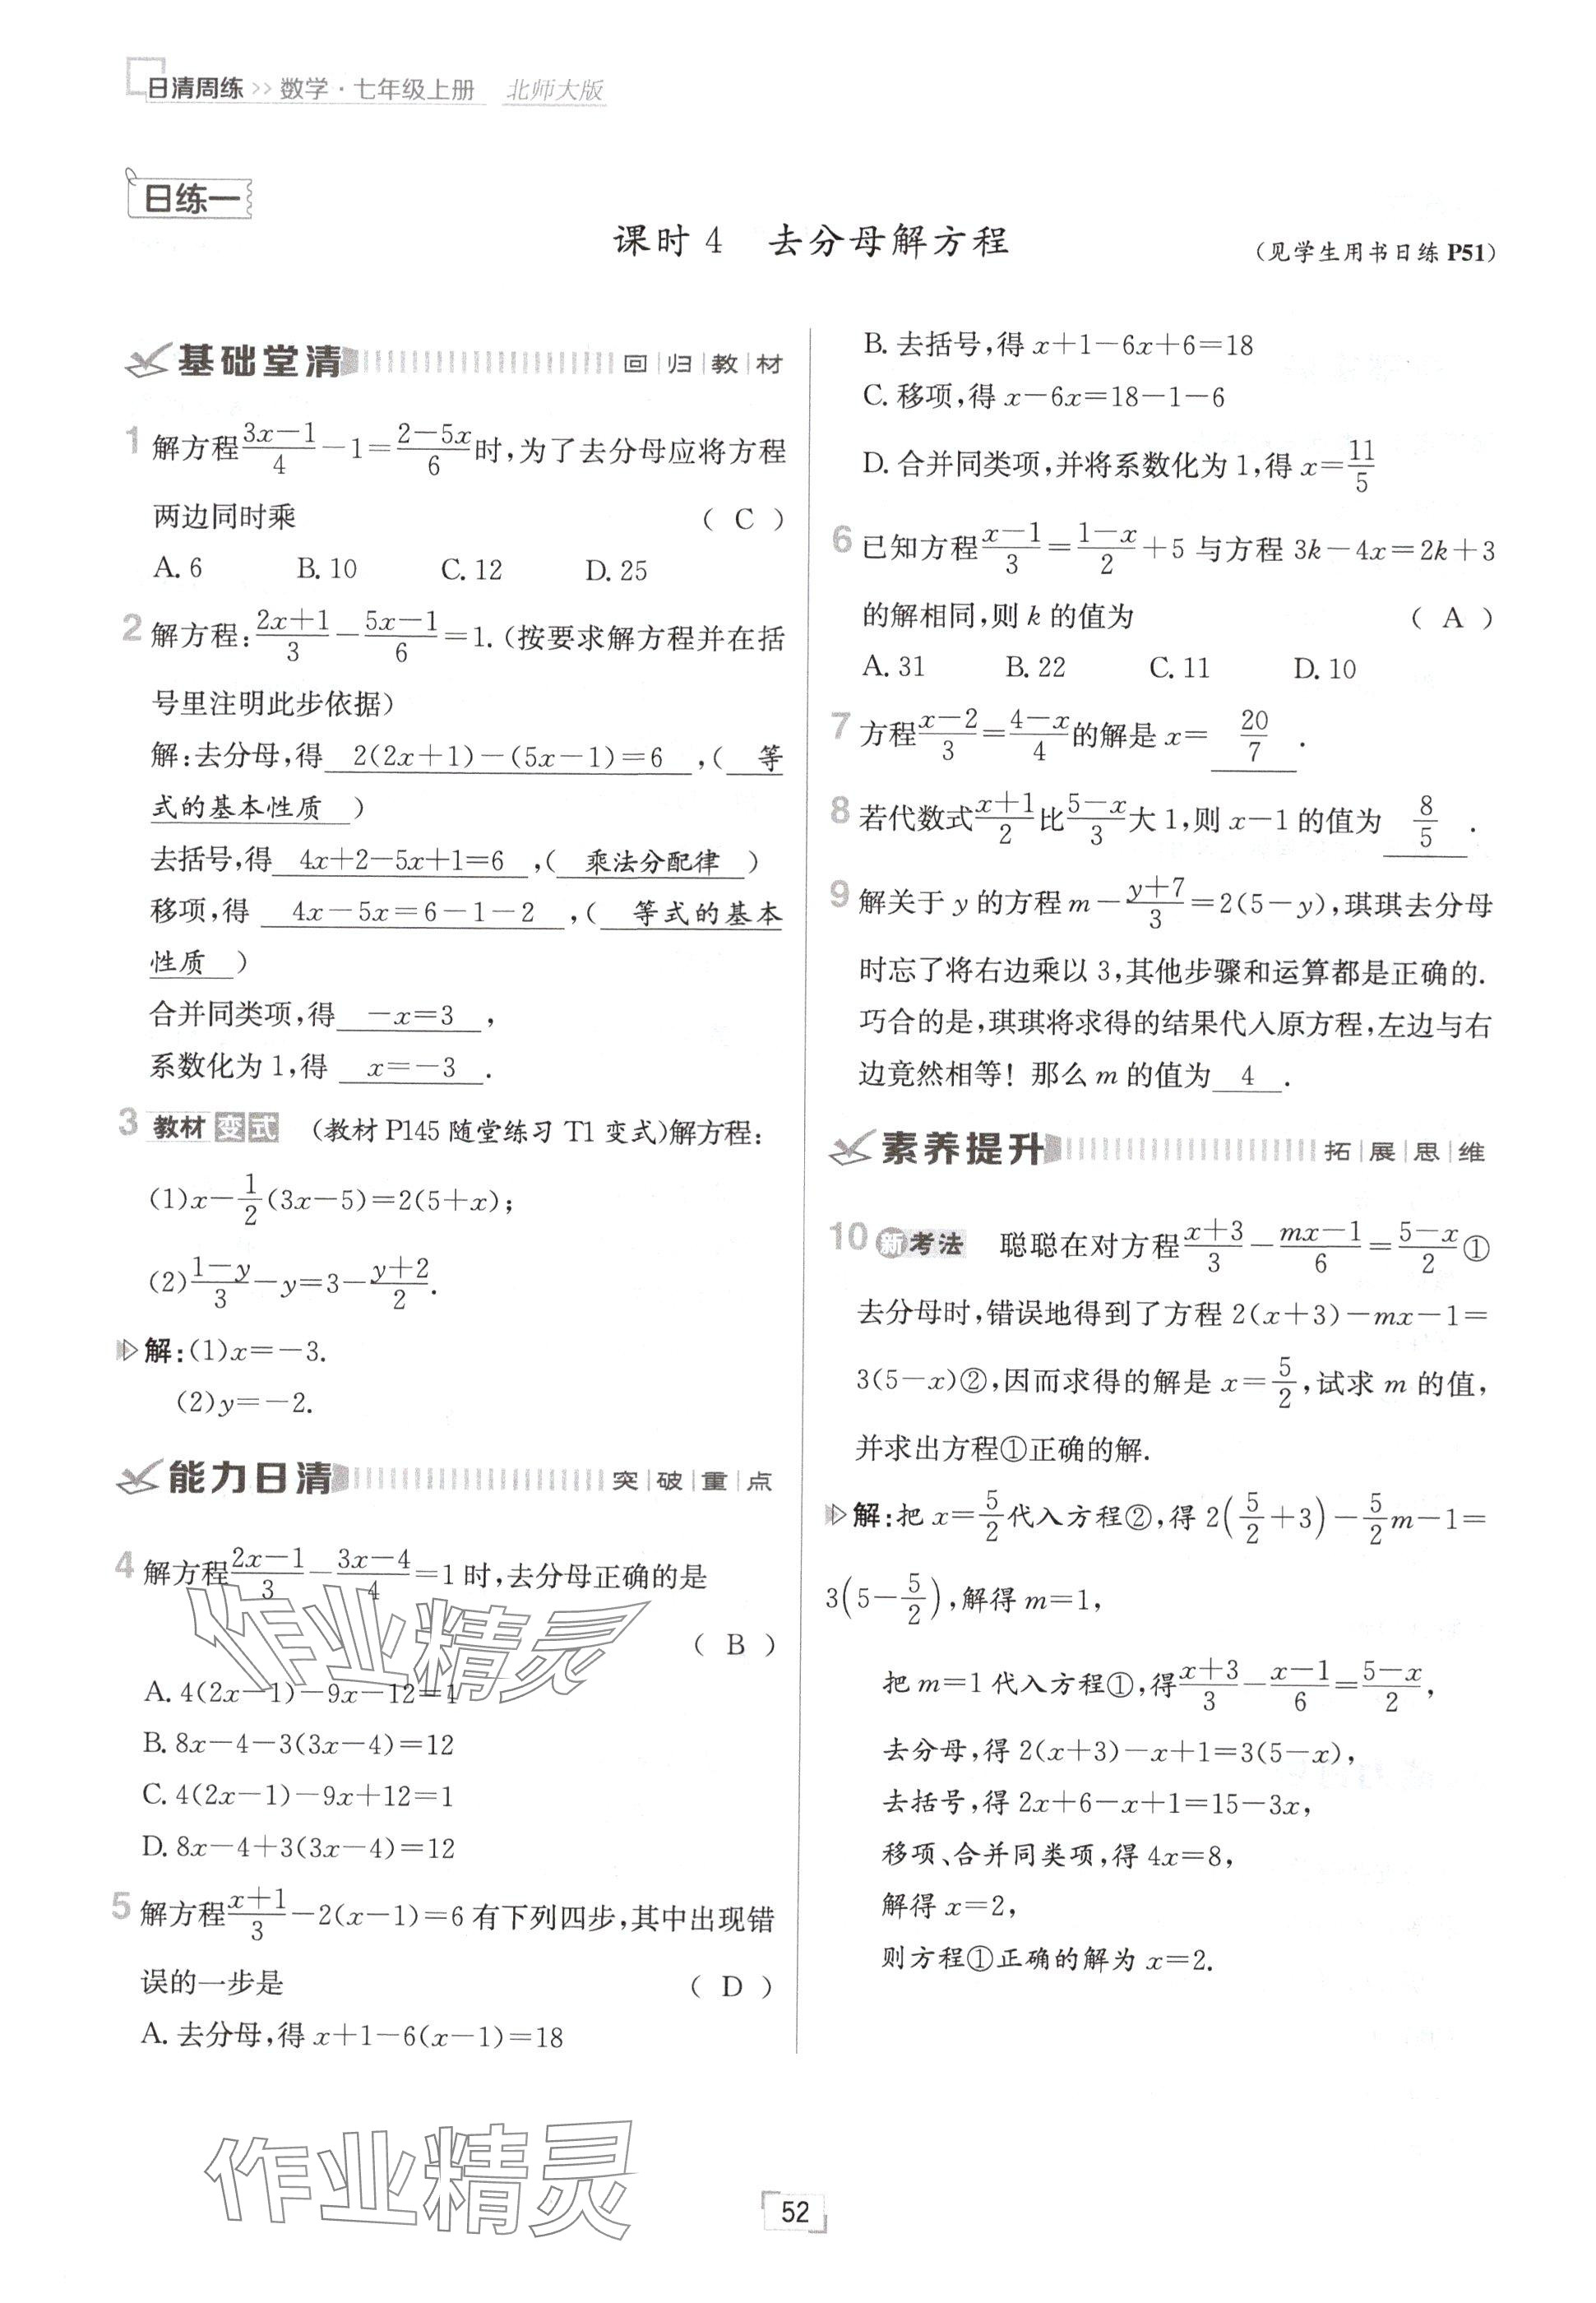 日清周练 >> 数学·七年级上册 北师大版
日练一
课时 4 去分母解方程 (见学生用书日练 P51)
基础堂清 回|归|教|材
1 解方程(3x-1)/4-1=(2-5x)/6时,为了去分母应将方程
两边同时乘 ( C )
A. 6 B. 10 C. 12 D. 25
2 解方程:(2x+1)/3-(5x-1)/6=1.(按要求解方程并在括
号里注明此步依据)
解:去分母,得 2(2x+1)-(5x-1)=6 ,( 等
式的基本性质 )
去括号,得 4x+2-5x+1=6 ,( 乘法分配律 )
移项,得 4x-5x=6-1-2 ,( 等式的基本
性质 )
合并同类项,得 -x=3 ,
系数化为 1,得 x=-3 .
3 教材 变式 (教材 P145 随堂练习 T1 变式)解方程:
(1)x-1/2(3x-5)=2(5+x);
(2)(1-y)/3-y=3-(y+2)/2.
解:(1)x=-3.
(2)y=-2.
能力日清 突|破|重|点
4 解方程(2x-1)/3-(3x-4)/4=1时,去分母正确的是
( B )
A. 4(2x-1)-9x-12=1
B. 8x-4-3(3x-4)=12
C. 4(2x-1)-9x+12=1
D. 8x-4+3(3x-4)=12
5 解方程(x+1)/3-2(x-1)=6有下列四步,其中出现错
误的一步是 ( D )
A. 去分母,得 x+1-6(x-1)=18
B. 去括号,得 x+1-6x+6=18
C. 移项,得 x-6x=18-1-6
D. 合并同类项,并将系数化为 1,得 x=11/5
6 已知方程(x-1)/3=(1-x)/2+5 与方程 3k-4x=2k+3
的解相同,则 k 的值为 ( A )
A. 31 B. 22 C. 11 D. 10
7 方程(x-2)/3=(4-x)/4的解是 x= 20/7 .
8 若代数式(x+1)/2比(5-x)/3大 1,则 x-1 的值为 8/5 .
9 解关于 y 的方程 m-(y+7)/3=2(5-y),琪琪去分母
时忘了将右边乘以 3,其他步骤和运算都是正确的.
巧合的是,琪琪将求得的结果代入原方程,左边与右
边竟然相等!那么 m 的值为 4 .
素养提升 拓|展|思|维
10 新考法 聪聪在对方程(x+3)/3-(mx-1)/6=(5-x)/2①
去分母时,错误地得到了方程 2(x+3)-mx-1=
3(5-x)②,因而求得的解是 x=5/2,试求 m 的值,
并求出方程①正确的解.
解:把 x=5/2代入方程②,得 2(5/2+3)-5/2m-1=
3(5-5/2),解得 m=1,
把 m=1 代入方程①,得(x+3)/3-(x-1)/6=(5-x)/2,
去分母,得 2(x+3)-x+1=3(5-x),
去括号,得 2x+6-x+1=15-3x,
移项、合并同类项,得 4x=8,
解得 x=2,
则方程①正确的解为 x=2.
作业精灵
作业精灵
52